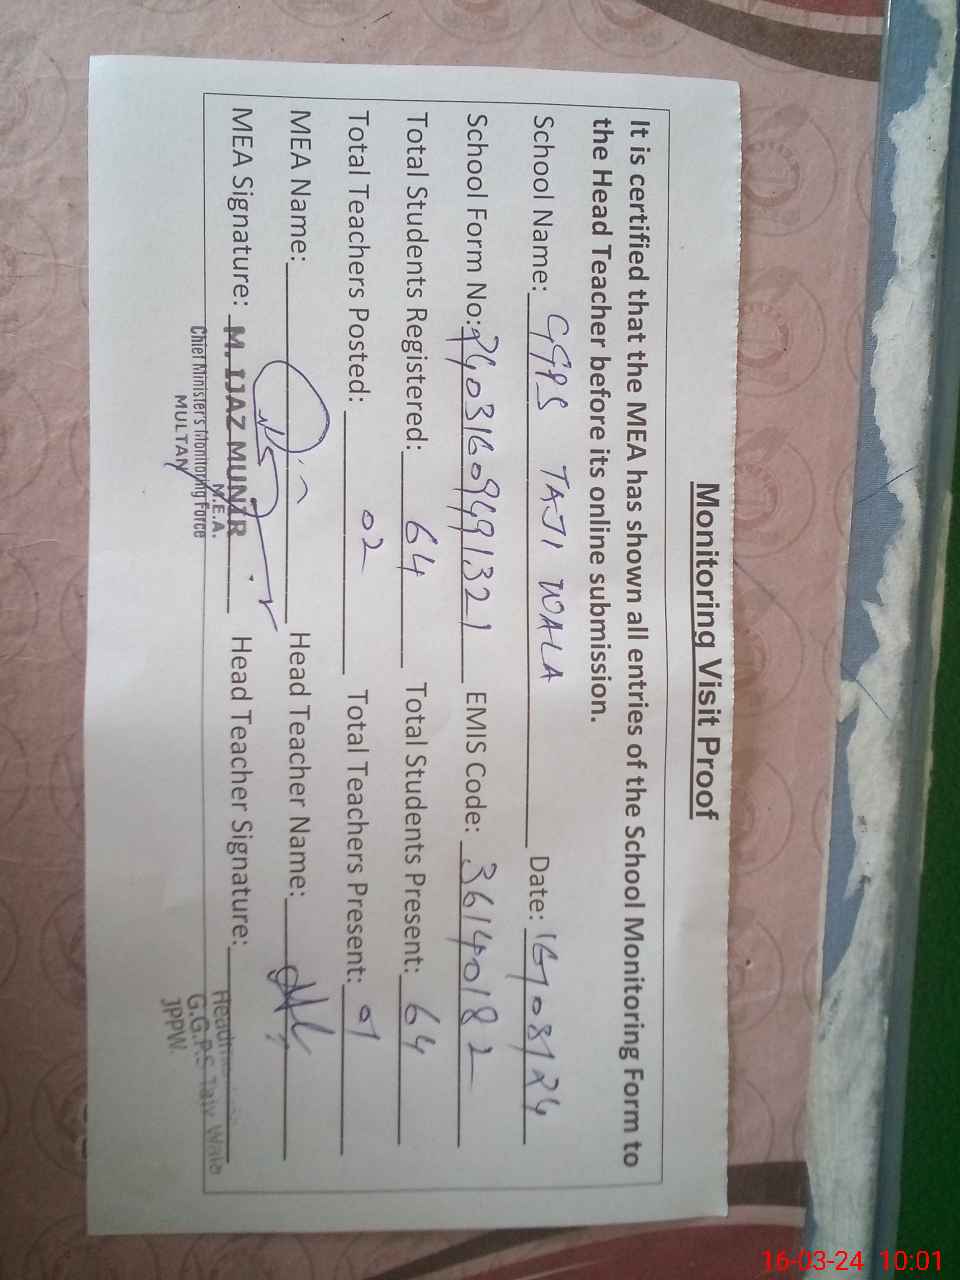 Monitoring Visit Proof
It is certified that the MEA has shown all entries of the School Monitoring Form to
the Head Teacher before its online submission.
School Name: GGPS TAJI WALA Date: 16/03/24
School Form No: EMIS Code: 36140182
Total Students Registered: 64 Total Students Present: 64
Total Teachers Posted: 02 Total Teachers Present: 01
MEA Name: Head Teacher Name:
MEA Signature: M. IJAZ MUNIR Head Teacher Signature:
M.E.A.
Chief Minister's Monitoring Force
MULTAN
G.G.P.S Taiy Wala
JPPW.
16-03-24 10:01